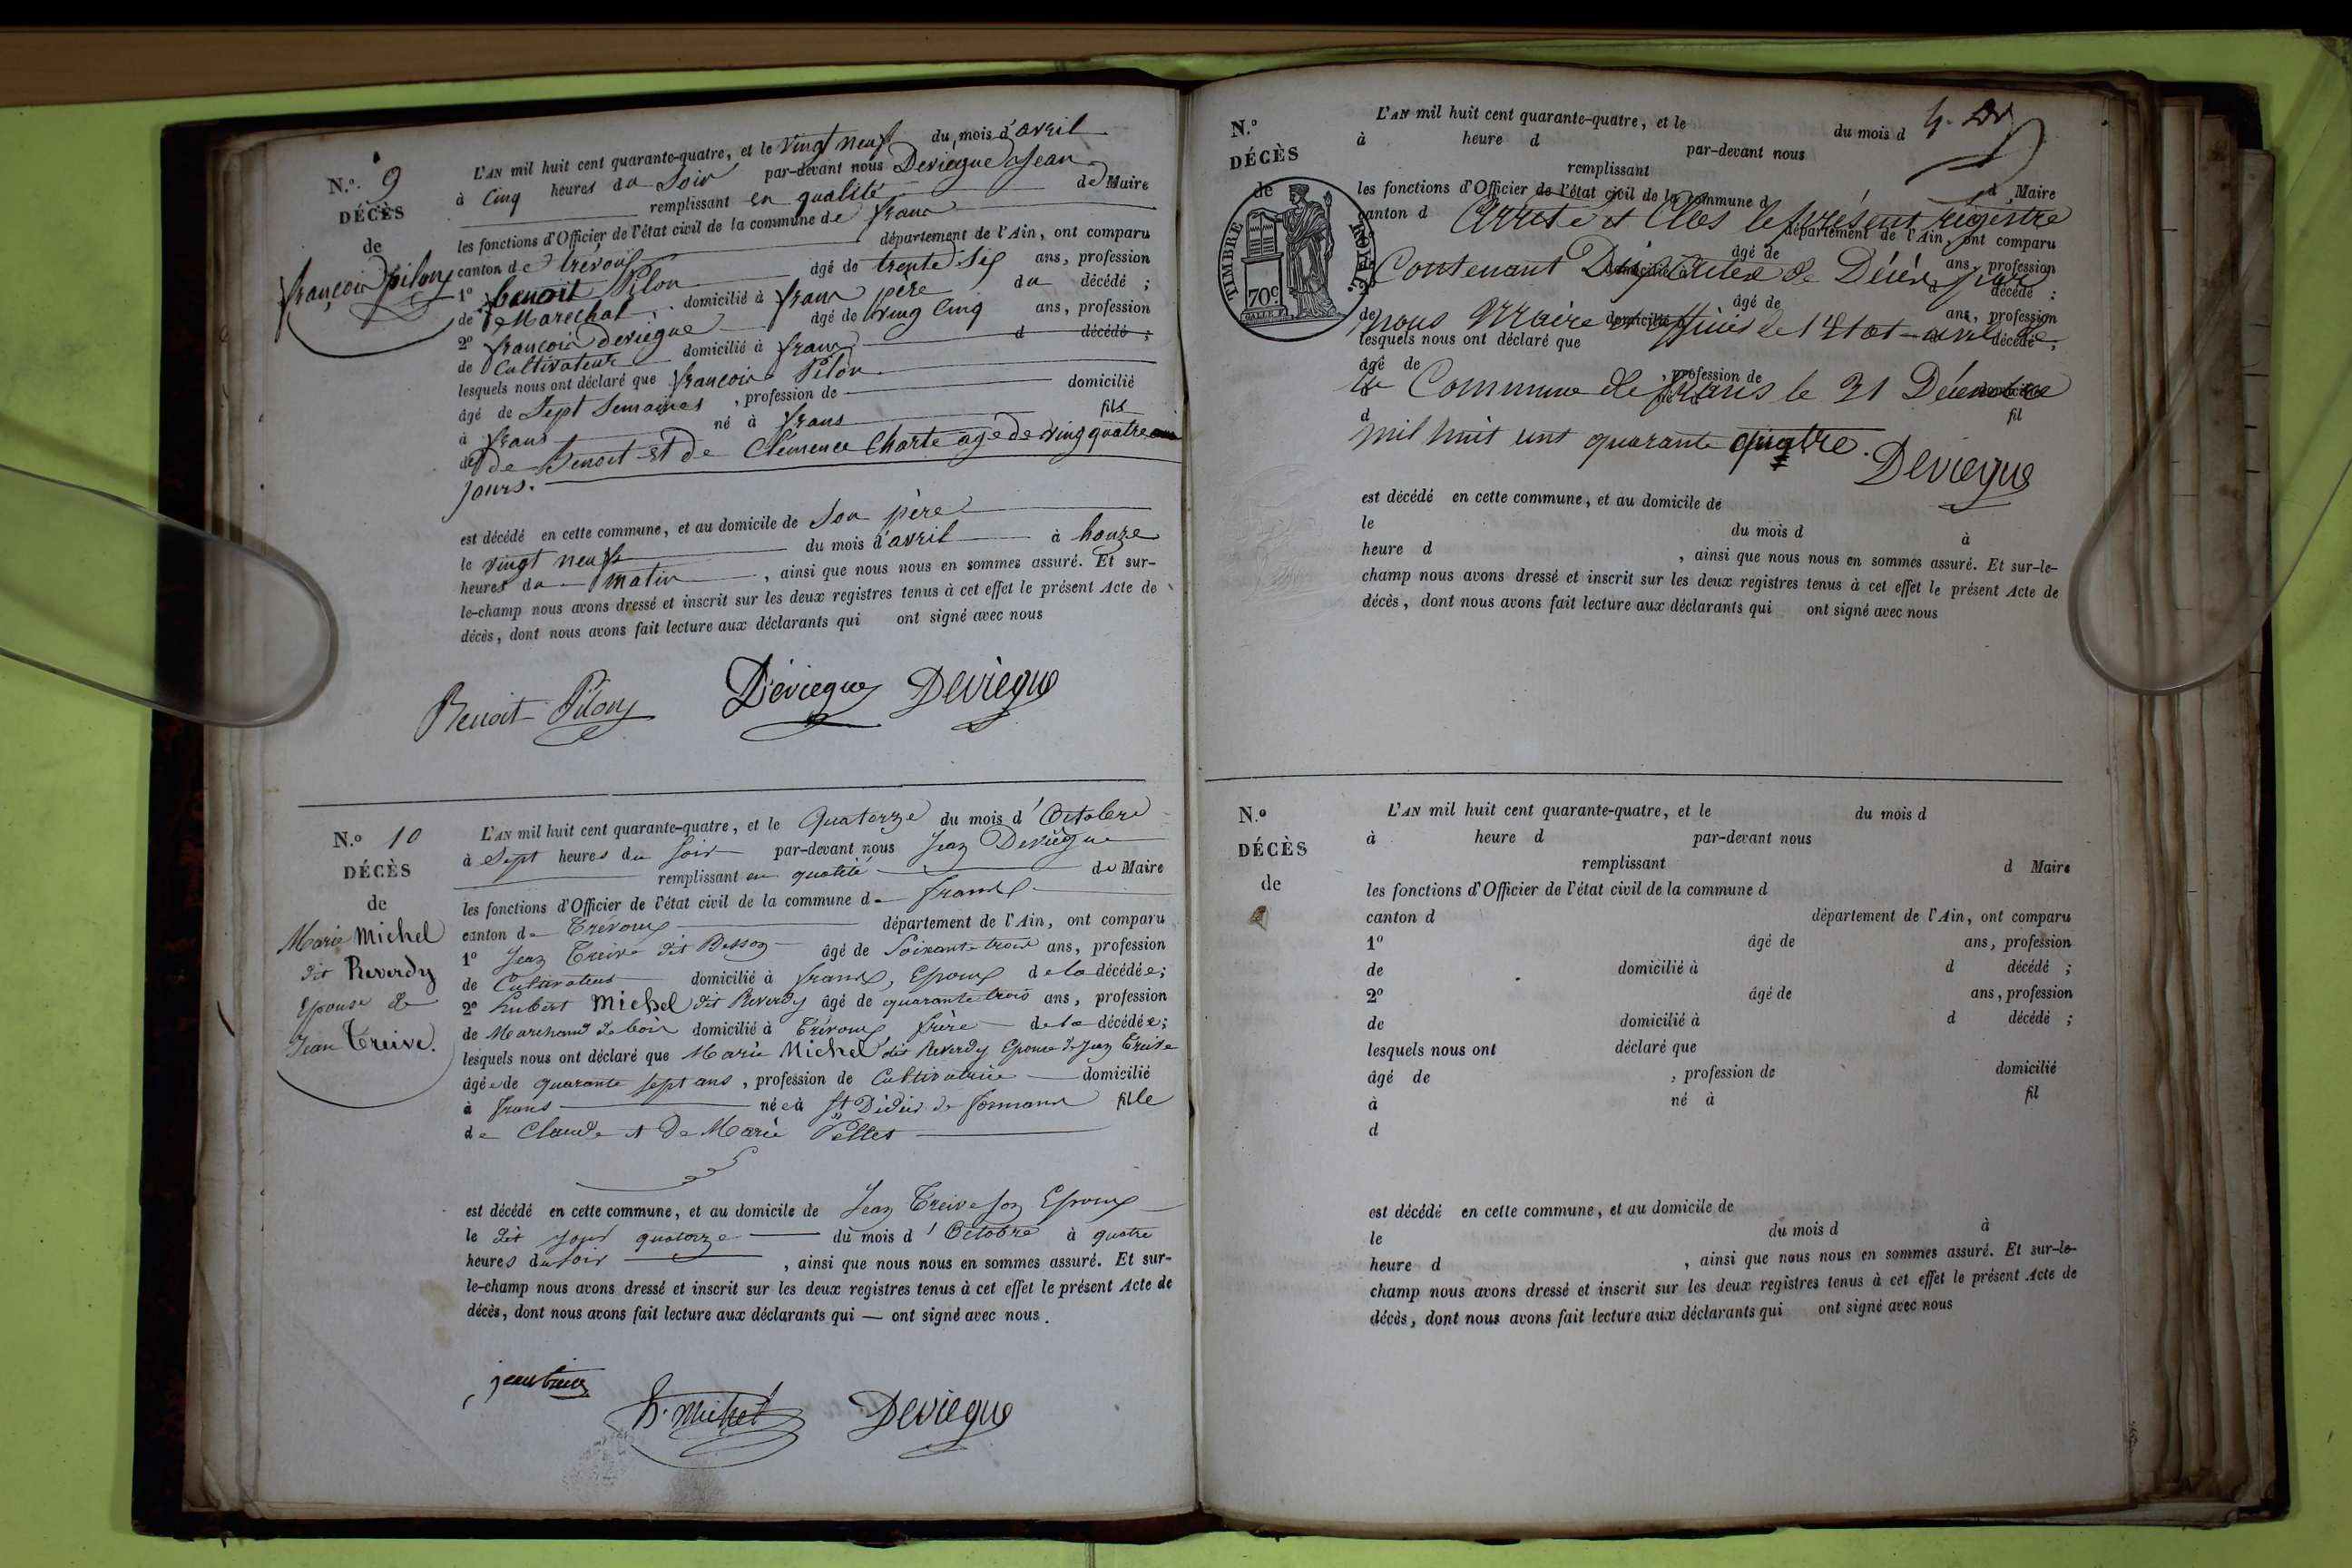 N.º 9
DÉCÈS
de
françois pilon
L'AN mil huit cent quarante-quatre, et le vingt neuf du mois d'avril
à Cinq heures du Soir par-devant nous Deviegue Jean
remplissant en qualité de Maire
les fonctions d'Officier de l'état civil de la commune de frans
canton de trevoux département de l'Ain, ont comparu
1º benoit Pilon âgé de trente Six ans, profession
de Marechal domicilié à frans père du décédé ;
2º françois deviegue âgé de ving Cinq ans, profession
de Cultivateur domicilié à frans d décédé ;
lesquels nous ont déclaré que françois Pilon
âgé de Sept Semaines , profession de domicilié
à frans né à frans fils
de de benoit et de Clémence Charte age de ving quatre ans
jours.
est décédé en cette commune, et au domicile de Son père
le vingt neuf du mois d'avril à honze
heures du matin , ainsi que nous nous en sommes assuré. Et sur-
le-champ nous avons dressé et inscrit sur les deux registres tenus à cet effet le présent Acte de
décès, dont nous avons fait lecture aux déclarants qui ont signé avec nous
Benoit Pilon Déviegue Deviègue
N.º 10
DÉCÈS
de
Marie Michel
dit Reverdy
Epouse de
Jean Treive.
L'AN mil huit cent quarante-quatre, et le Quatorze du mois d'Octobre
à Sept heures du soir par-devant nous Jean Deviègue
remplissant en qualité de Maire
les fonctions d'Officier de l'état civil de la commune de frans
canton de Trévoux département de l'Ain, ont comparu
1º Jean Treive dit Besson âgé de Soixante trois ans, profession
de Cultivateur domicilié à frans, Epoux de la décédée;
2º hubert Michel dit Reverdy âgé de quarante trois ans, profession
de Marchand de bois domicilié à Trévoux frère de la décédée;
lesquels nous ont déclaré que Marie Michel dit Reverdy Epouse de Jean Treive
âgée de quarante sept ans , profession de Cultivatrice domicilié
à frans née à St Didier de formans fille
de Claude et De Marie Peltet
est décédé en cette commune, et au domicile de Jean Treive son Epoux
le dit jour quatorze du mois d'Octobre à quatre
heures du soir , ainsi que nous nous en sommes assuré. Et sur-
le-champ nous avons dressé et inscrit sur les deux registres tenus à cet effet le présent Acte de
décès, dont nous avons fait lecture aux déclarants qui — ont signé avec nous.
jean treive h. Michel Deviegue
N.º
DÉCÈS
de
TIMBRE ROYAL.
70c
L'AN mil huit cent quarante-quatre, et le du mois d
à heure d par-devant nous
remplissant d Maire
les fonctions d'Officier de l'état civil de la commune d
Arrêté et Clos le présent registre
canton d département de l'Ain, ont comparu
âgé de ans, profession
Contenant Dix actes de Décès par
domicilié à d décédé ;
âgé de ans, profession
nous Maire officier de l'état civil de
de domicilié à décédé ;
lesquels nous ont déclaré que
âgé de , profession de domicilié
la Commune de frans le 31 Décembre
d fil
mil huit cent quarante quatre.
Deviegue
est décédé en cette commune, et au domicile de
le du mois d à
heure d , ainsi que nous nous en sommes assuré. Et sur-le-
champ nous avons dressé et inscrit sur les deux registres tenus à cet effet le présent Acte de
décès, dont nous avons fait lecture aux déclarants qui ont signé avec nous
N.º
DÉCÈS
de
L'AN mil huit cent quarante-quatre, et le du mois d
à heure d par-devant nous
remplissant d Maire
les fonctions d'Officier de l'état civil de la commune d
canton d département de l'Ain, ont comparu
1º âgé de ans, profession
de domicilié à d décédé ;
2º âgé de ans, profession
de domicilié à d décédé ;
lesquels nous ont déclaré que
âgé de , profession de domicilié
à né à fil
d
est décédé en cette commune, et au domicile de
le du mois d à
heure d , ainsi que nous nous en sommes assuré. Et sur-le-
champ nous avons dressé et inscrit sur les deux registres tenus à cet effet le présent Acte de
décès, dont nous avons fait lecture aux déclarants qui ont signé avec nous